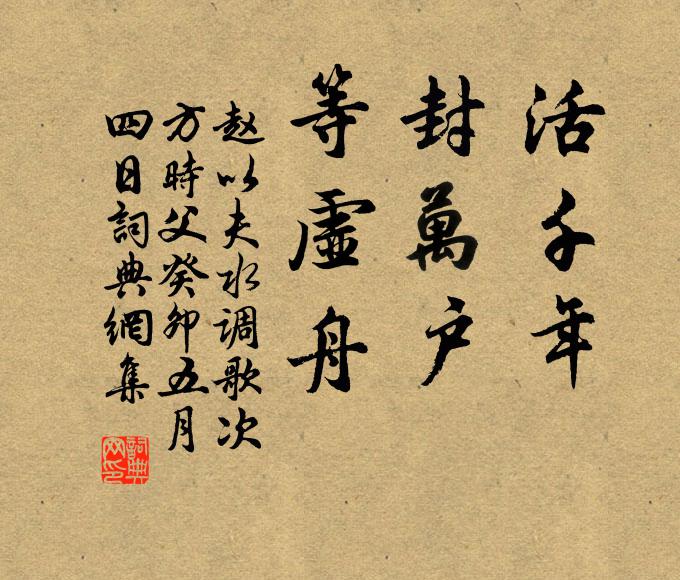 活千年
封萬戶
等虛舟
赵以夫水调歌次
方時父癸卯五月
四日詞典網集
詞典网印